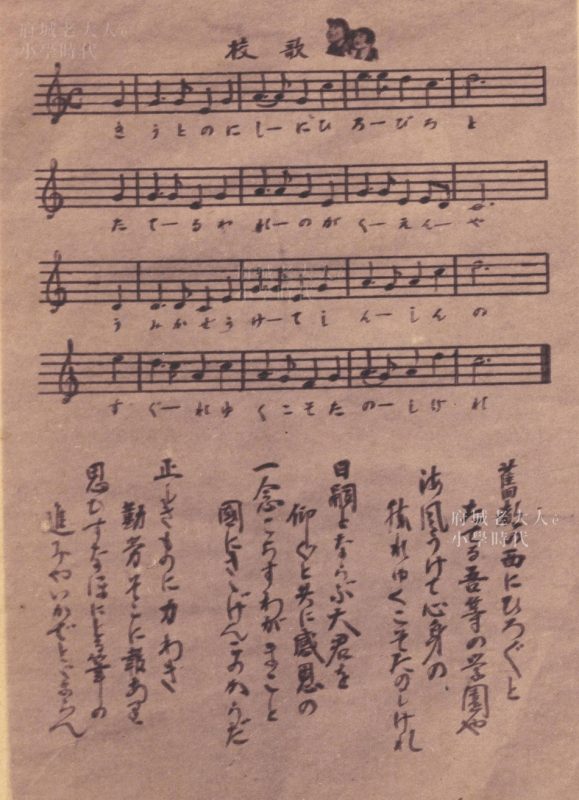 府城老大人の
小學時代
校歌
きうとのにしーにひろーびろと
たてーるわれーのがくーえんーや
うみかぜうけーてしんーしんの
すぐーれゆくこそたのーしけれ
舊都の西にひろぐと
たてる吾等の学園や
海風うけて心身の
勝れゆくこそたのしけれ
日嗣とならぶ大君を
仰ぐと共に感恩の
一念こらすわがまこと
國にさゝげん
正しきものに力わき
勤労そこに
思ひすなほにとる筆の
進みやいかでとゞまらん
府城老大人
小學時代